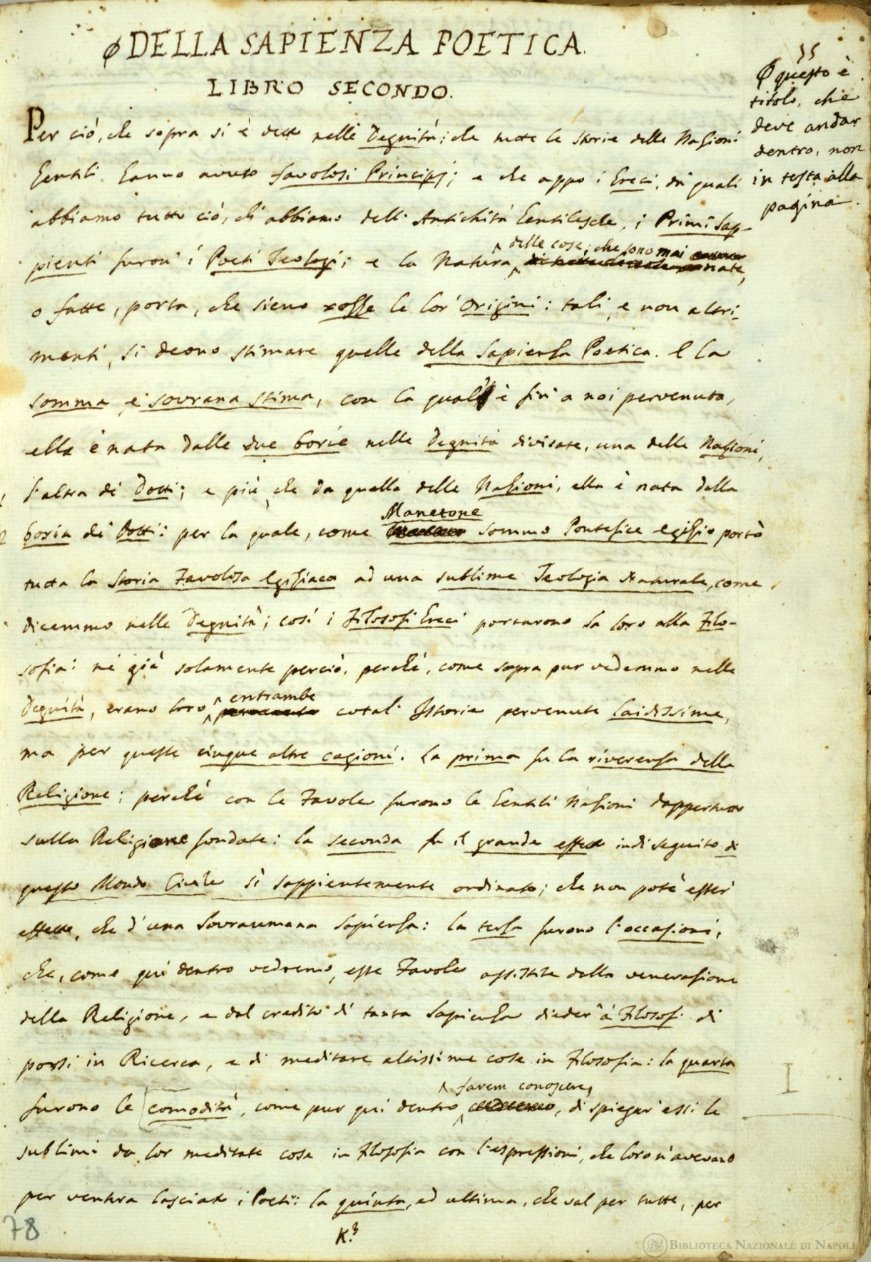 ϕ DELLA SAPIENZA POETICA
LIBRO SECONDO.
Per ciò, che sopra si è detto nelle Degnità; che tutte le Storie delle Nazioni
Gentili hanno avuto favolosi Principj; e che appo i Greci, da' quali
abbiamo tutto ciò, ch'abbiamo dell'Antichità Gentilesche, i Primi Sap-
pienti furon' i Poeti Teologi; e la Natura delle cose, che sono mai nate,
o fatte, porta, che sieno rozze le lor' Origini: tali, e non altri-
menti, si deono stimare quelle della Sapienza Poetica. E la
somma, e sovrana stima, con la qual è fin' a noi pervenuta,
ella è nata dalle due borie nelle Degnità divisate, una delle Nazioni,
l'altra de' Dotti; e più, che da quella delle Nazioni, ella è nata dalla
boria de' Dotti: per la quale, come Manetone sommo Pontefice Egizio portò
tutta la Storia Favolosa Egiziaca ad una sublime Teologia Naturale, come
dicemmo nelle Degnità; così i Filosofi Greci portarono la loro alla Filo-
sofia: nè già solamente perciò, perchè, come sopra pur vedemmo nelle
Degnità, erano loro entrambe cotal' Istorie pervenute laidissime,
ma per queste cinque altre cagioni. La prima fu la riverenza della
Religione; perchè con le Favole furono le Gentili Nazioni dappertutto
sulla Religione fondate: la seconda fu il grande effetto indi seguito di
questo Mondo Civile sì sappientemente ordinato; che non potè esser'
effetto, che d'una Sovraumana Sapienza: la terza furono l'occasioni,
che, come qui dentro vedremo, esse Favole assistite dalla venerazione
della Religione, e dal credito di tanta Sapienza dieder' a' Filosofi di
porsi in Ricerca, e di meditare altissime cose in Filosofia: la quarta
furono le comodità, come pur qui dentro farem conoscere, di spiegar' essi le
sublimi da lor meditate cose in Filosofia con l'espressioni, che loro n'avevano
per ventura lasciate i Poeti: la quinta, ed ultima, che val per tutte, per
K.3
78
55
ϕ questo è
titolo, che
deve andar
dentro, non
in testa alla
pagina.
I
BIBLIOTECA NAZIONALE DI NAPOLI